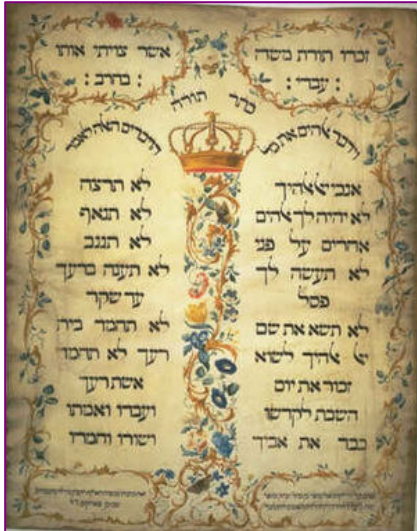 זכרו תורת משה
עבדי :
אשר צויתי אותו
: בחרב :
כתר תורה
וידבר ﭏהים את כל
הדברים האלה לאמר
אנכי יי ﭏהיך
לא יהיה לך ﭏהים
אחרים על פני
לא תעשה לך
פסל
לא תשא את שם
יי ﭏהיך לשוא
זכור את יום
השבת לקדשו
כבד את אביך
לא תרצח
לא תנאף
לא תגנב
לא תענה ברעך
עד שקר
לא תחמד בית
רעך לא תחמד
אשת רעך
ועבדו ואמתו
ושורו וחמרו